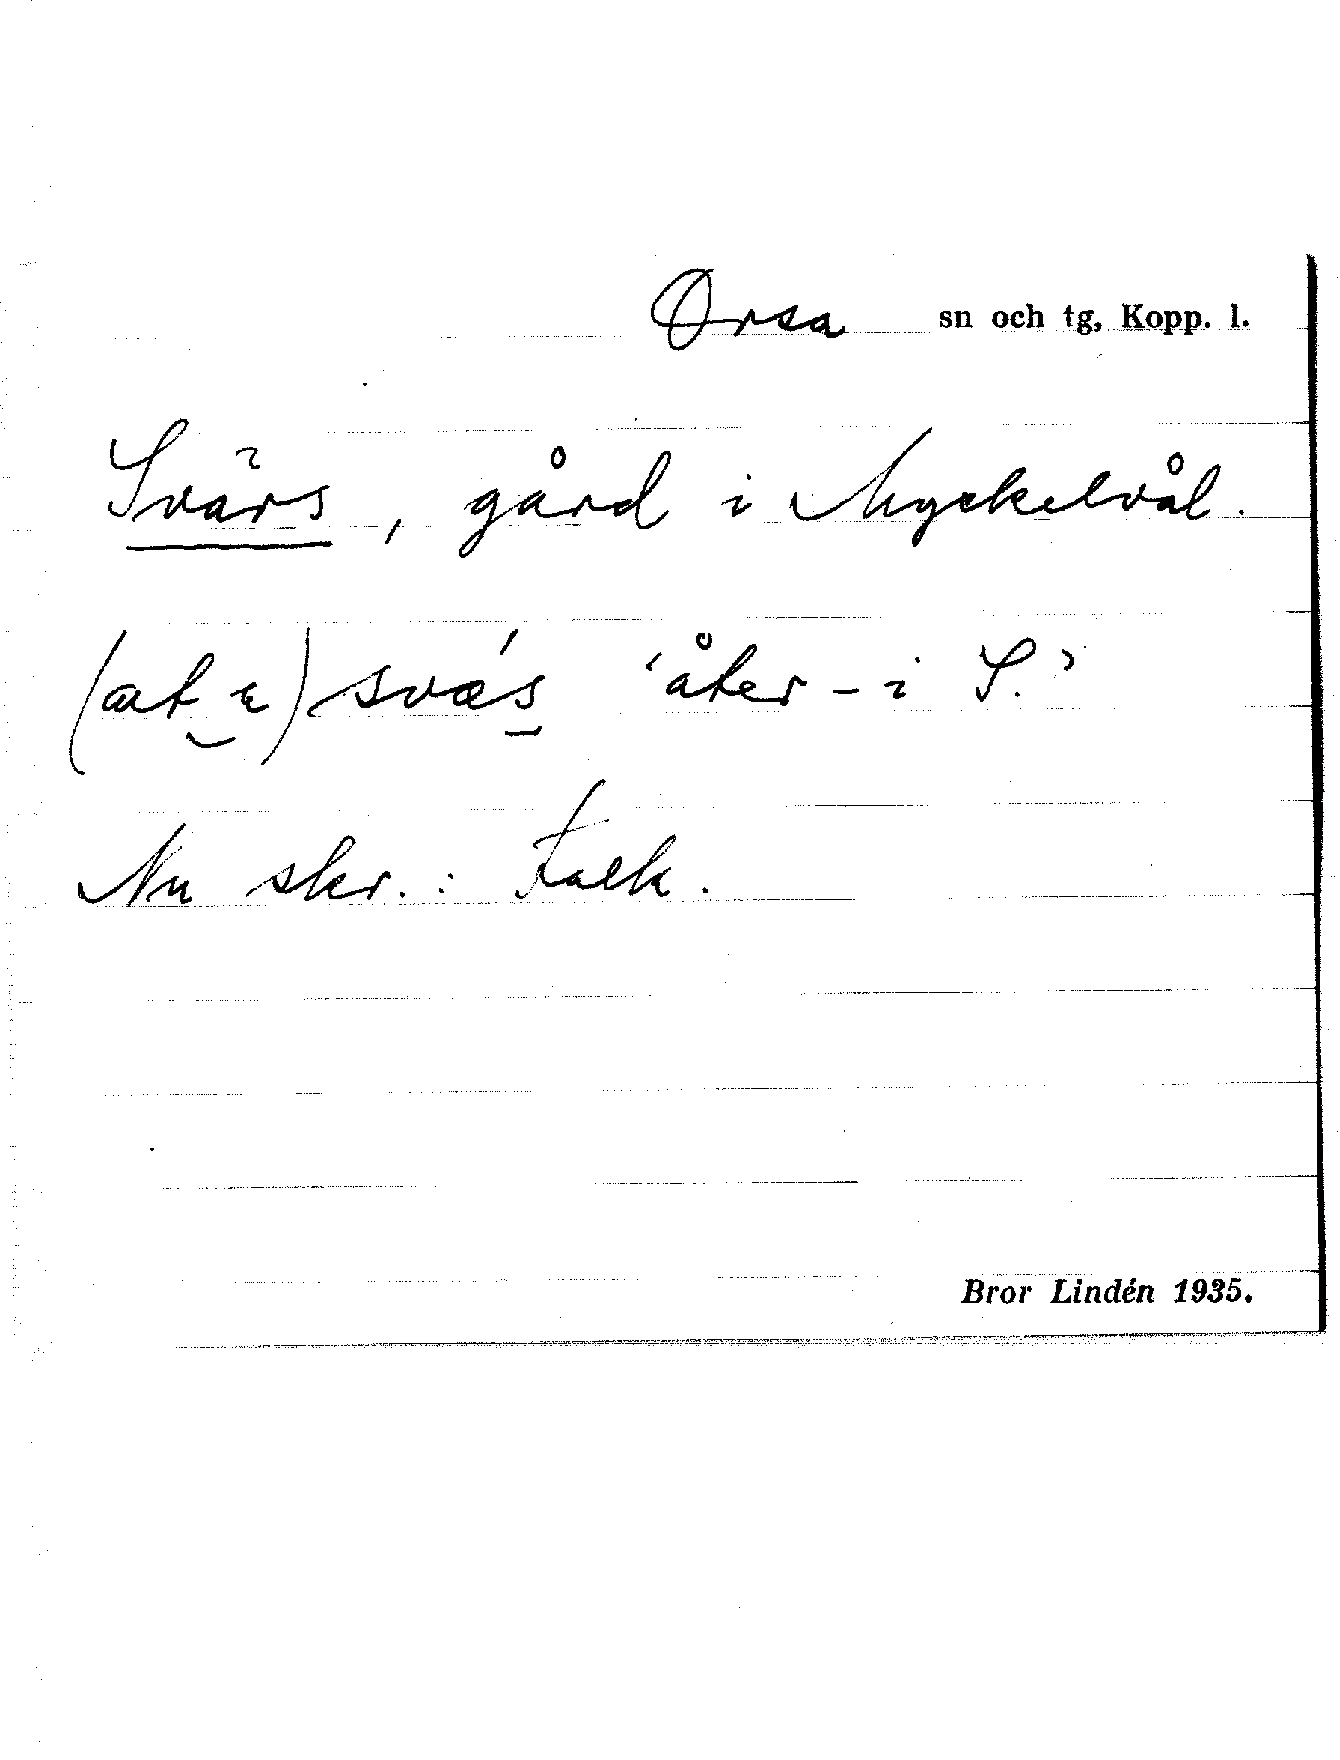 Orsa sn och tg, Kopp. l.
Svärs, gård i Myckelvål.
(at ɛ) svæ´s 'åter - i S.'
Nu skr. : Falk.
Bror Lindén 1935.